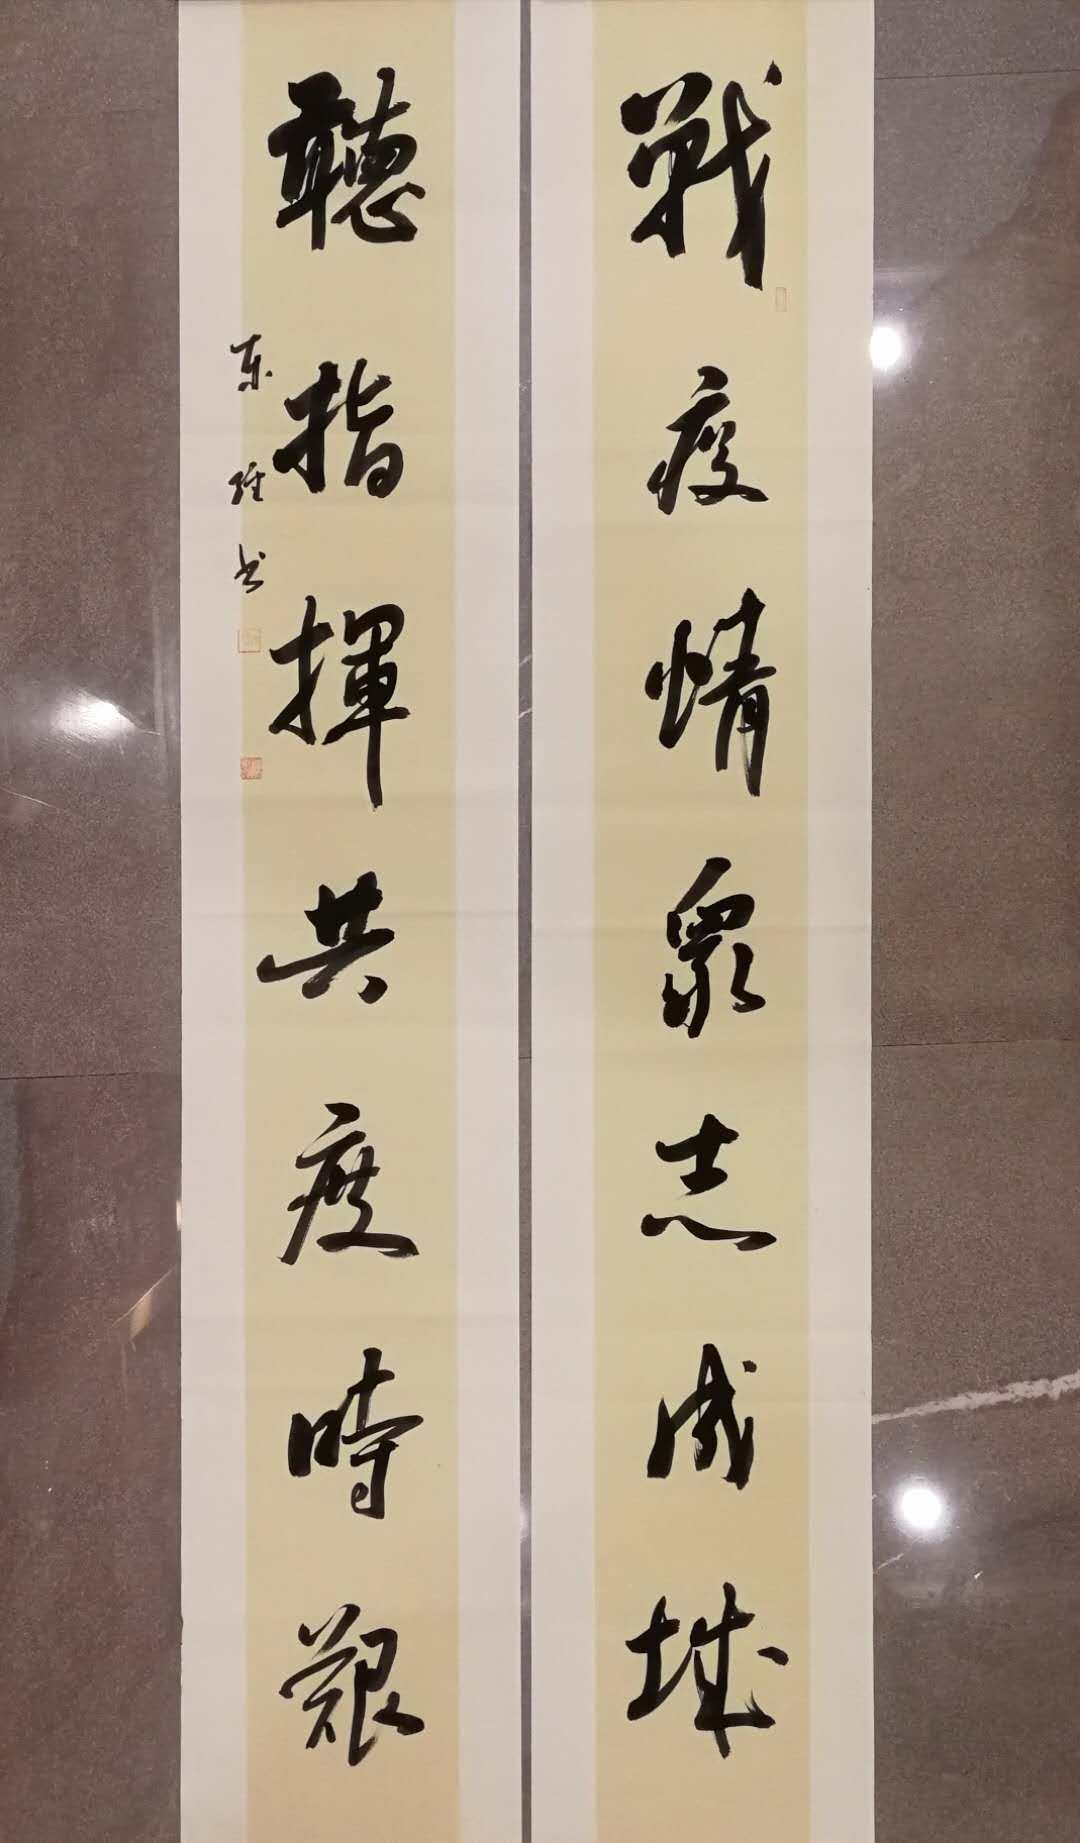 戰疫情衆志成城
聽指揮共度時艱
东维书